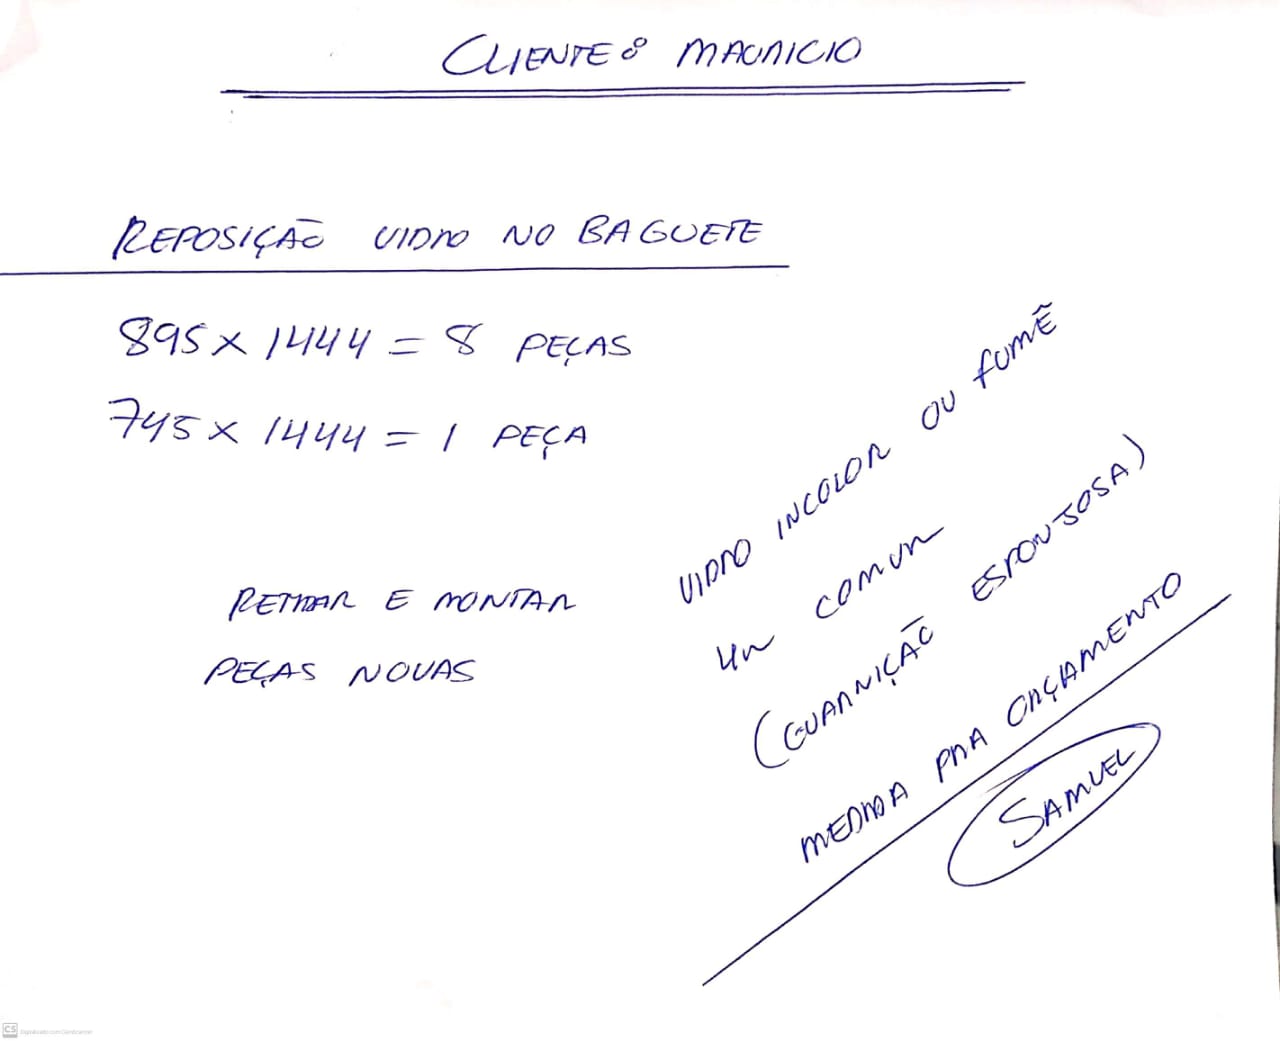 CLIENTE: MAURICIO
REPOSIÇÃO VIDRO NO BAGUETE
895 x 1444 = 8 PEÇAS
745 x 1444 = 1 PEÇA
RETIRAR E MONTAR
PEÇAS NOVAS
VIDRO INCOLOR OU FUMÊ
4m COMUM
(GUARNIÇÃO ESPONJOSA)
MEDIDA PRA ORÇAMENTO
SAMUEL
CS Digitalizado com CamScanner